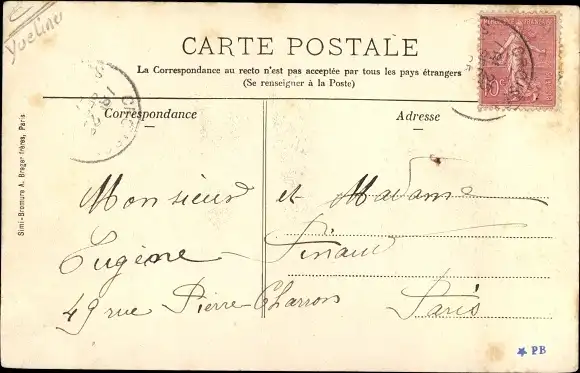 Yvelines
CARTE POSTALE
La Correspondance au recto n'est pas acceptée par tous les pays étrangers
(Se renseigner à la Poste)
Correspondance
Adresse
Monsieur et Madame
Eugène Finaud
49 rue Pierre Charron Paris
Simi-Bromure A. Breger frères, Paris
REPUBLIQUE FRANÇAISE
10
PB